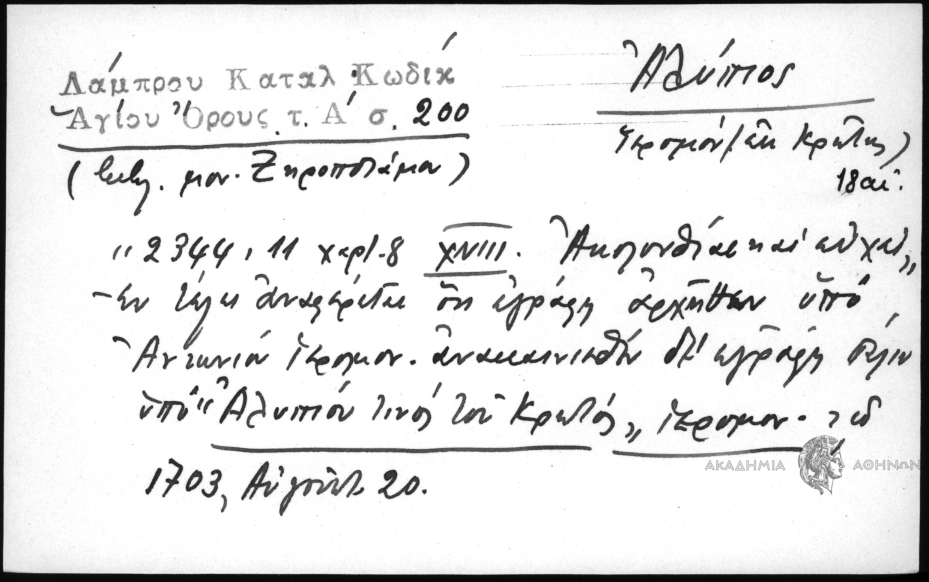 Λάμπρου Καταλ Κωδικ
Ἁγίου Ὄρους τ. Α΄ σ. 200
( μον. Ξηροποτάμου)
Ἀλύπιος
Ἱερομόν (ἐκ Κρήτης)
18 αἰ.
"2344, 11 χαρτ. 8 XVIII. Ἀκολουθίαι καὶ εὐχαί„
Ἐν τέλει ἀναφέρεται ὅτι ἐγράφη ἀρχῆθεν ὑπὸ
Ἀντωνίου ἱερομον. ἀνακαινισθὲν δὲ ἐγράφη πάλιν
ὑπὸ "Ἀλυπίου τινὸς τοῦ Κρητός„ ἱερομον.
1703, Αὐγούστ. 20.
ΑΚΑΔΗΜΙΑ ΑΘΗΝΩΝ